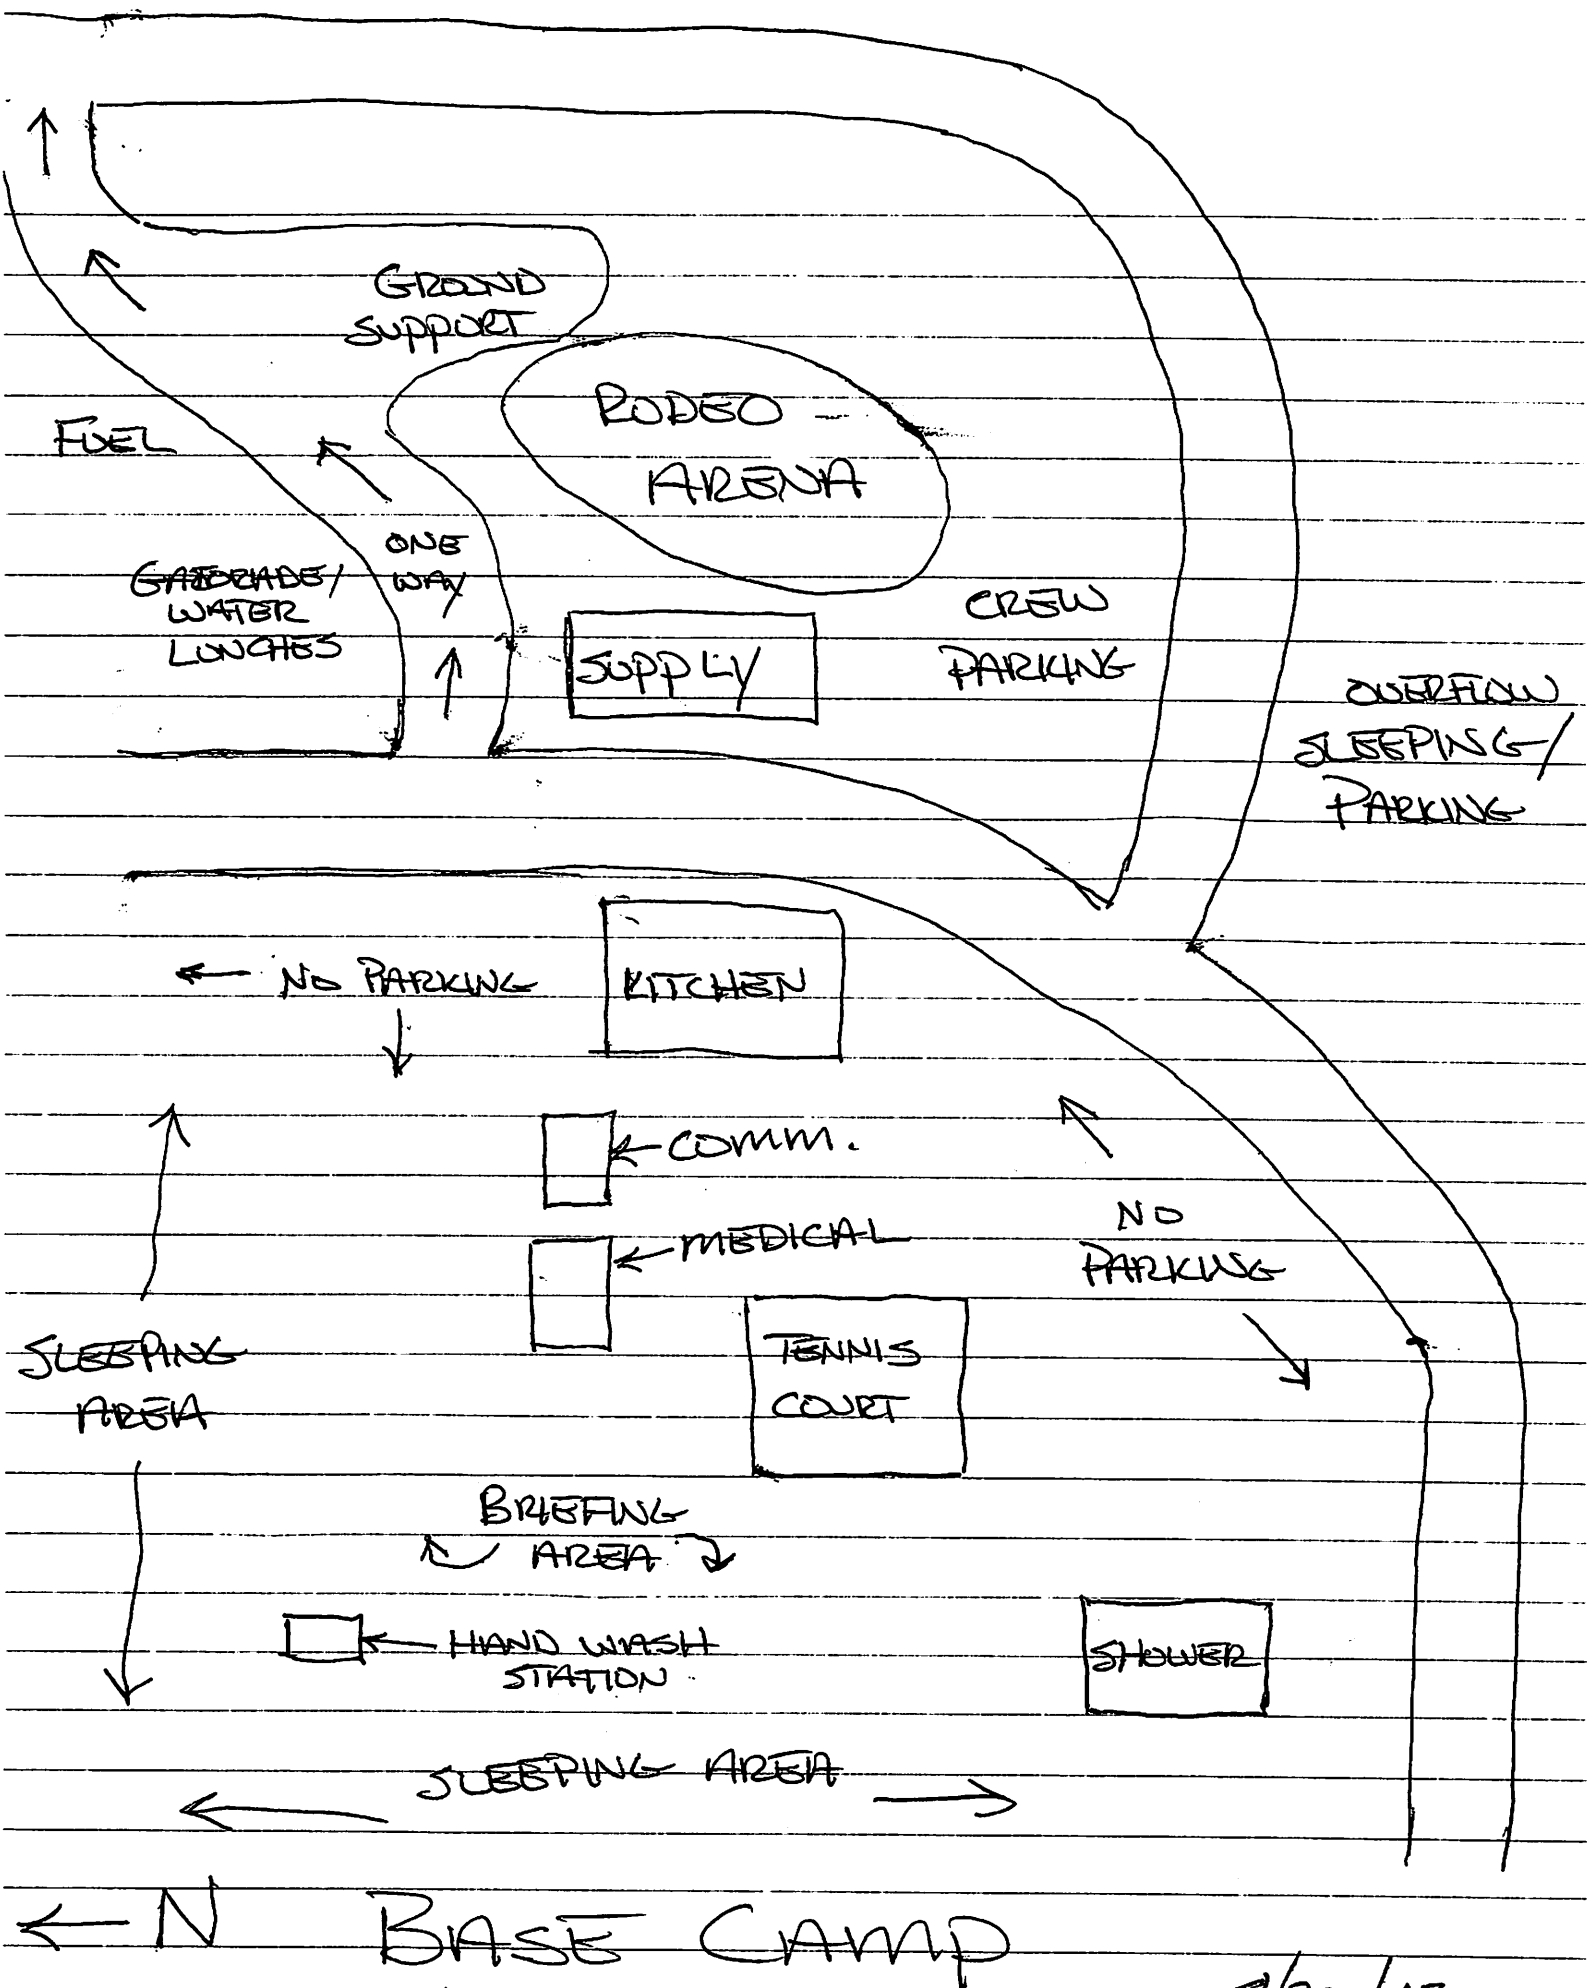 GROUND
SUPPORT
RODEO
ARENA
FUEL
ONE
WAY
GATORADE/
WATER
LUNCHES
SUPPLY
CREW
PARKING
OVERFLOW
SLEEPING/
PARKING
NO PARKING
KITCHEN
COMM.
MEDICAL
NO
PARKING
TENNIS
COURT
SLEEPING
AREA
BRIEFING
AREA
HAND WASH
STATION
SHOWER
SLEEPING AREA
N BASE CAMP